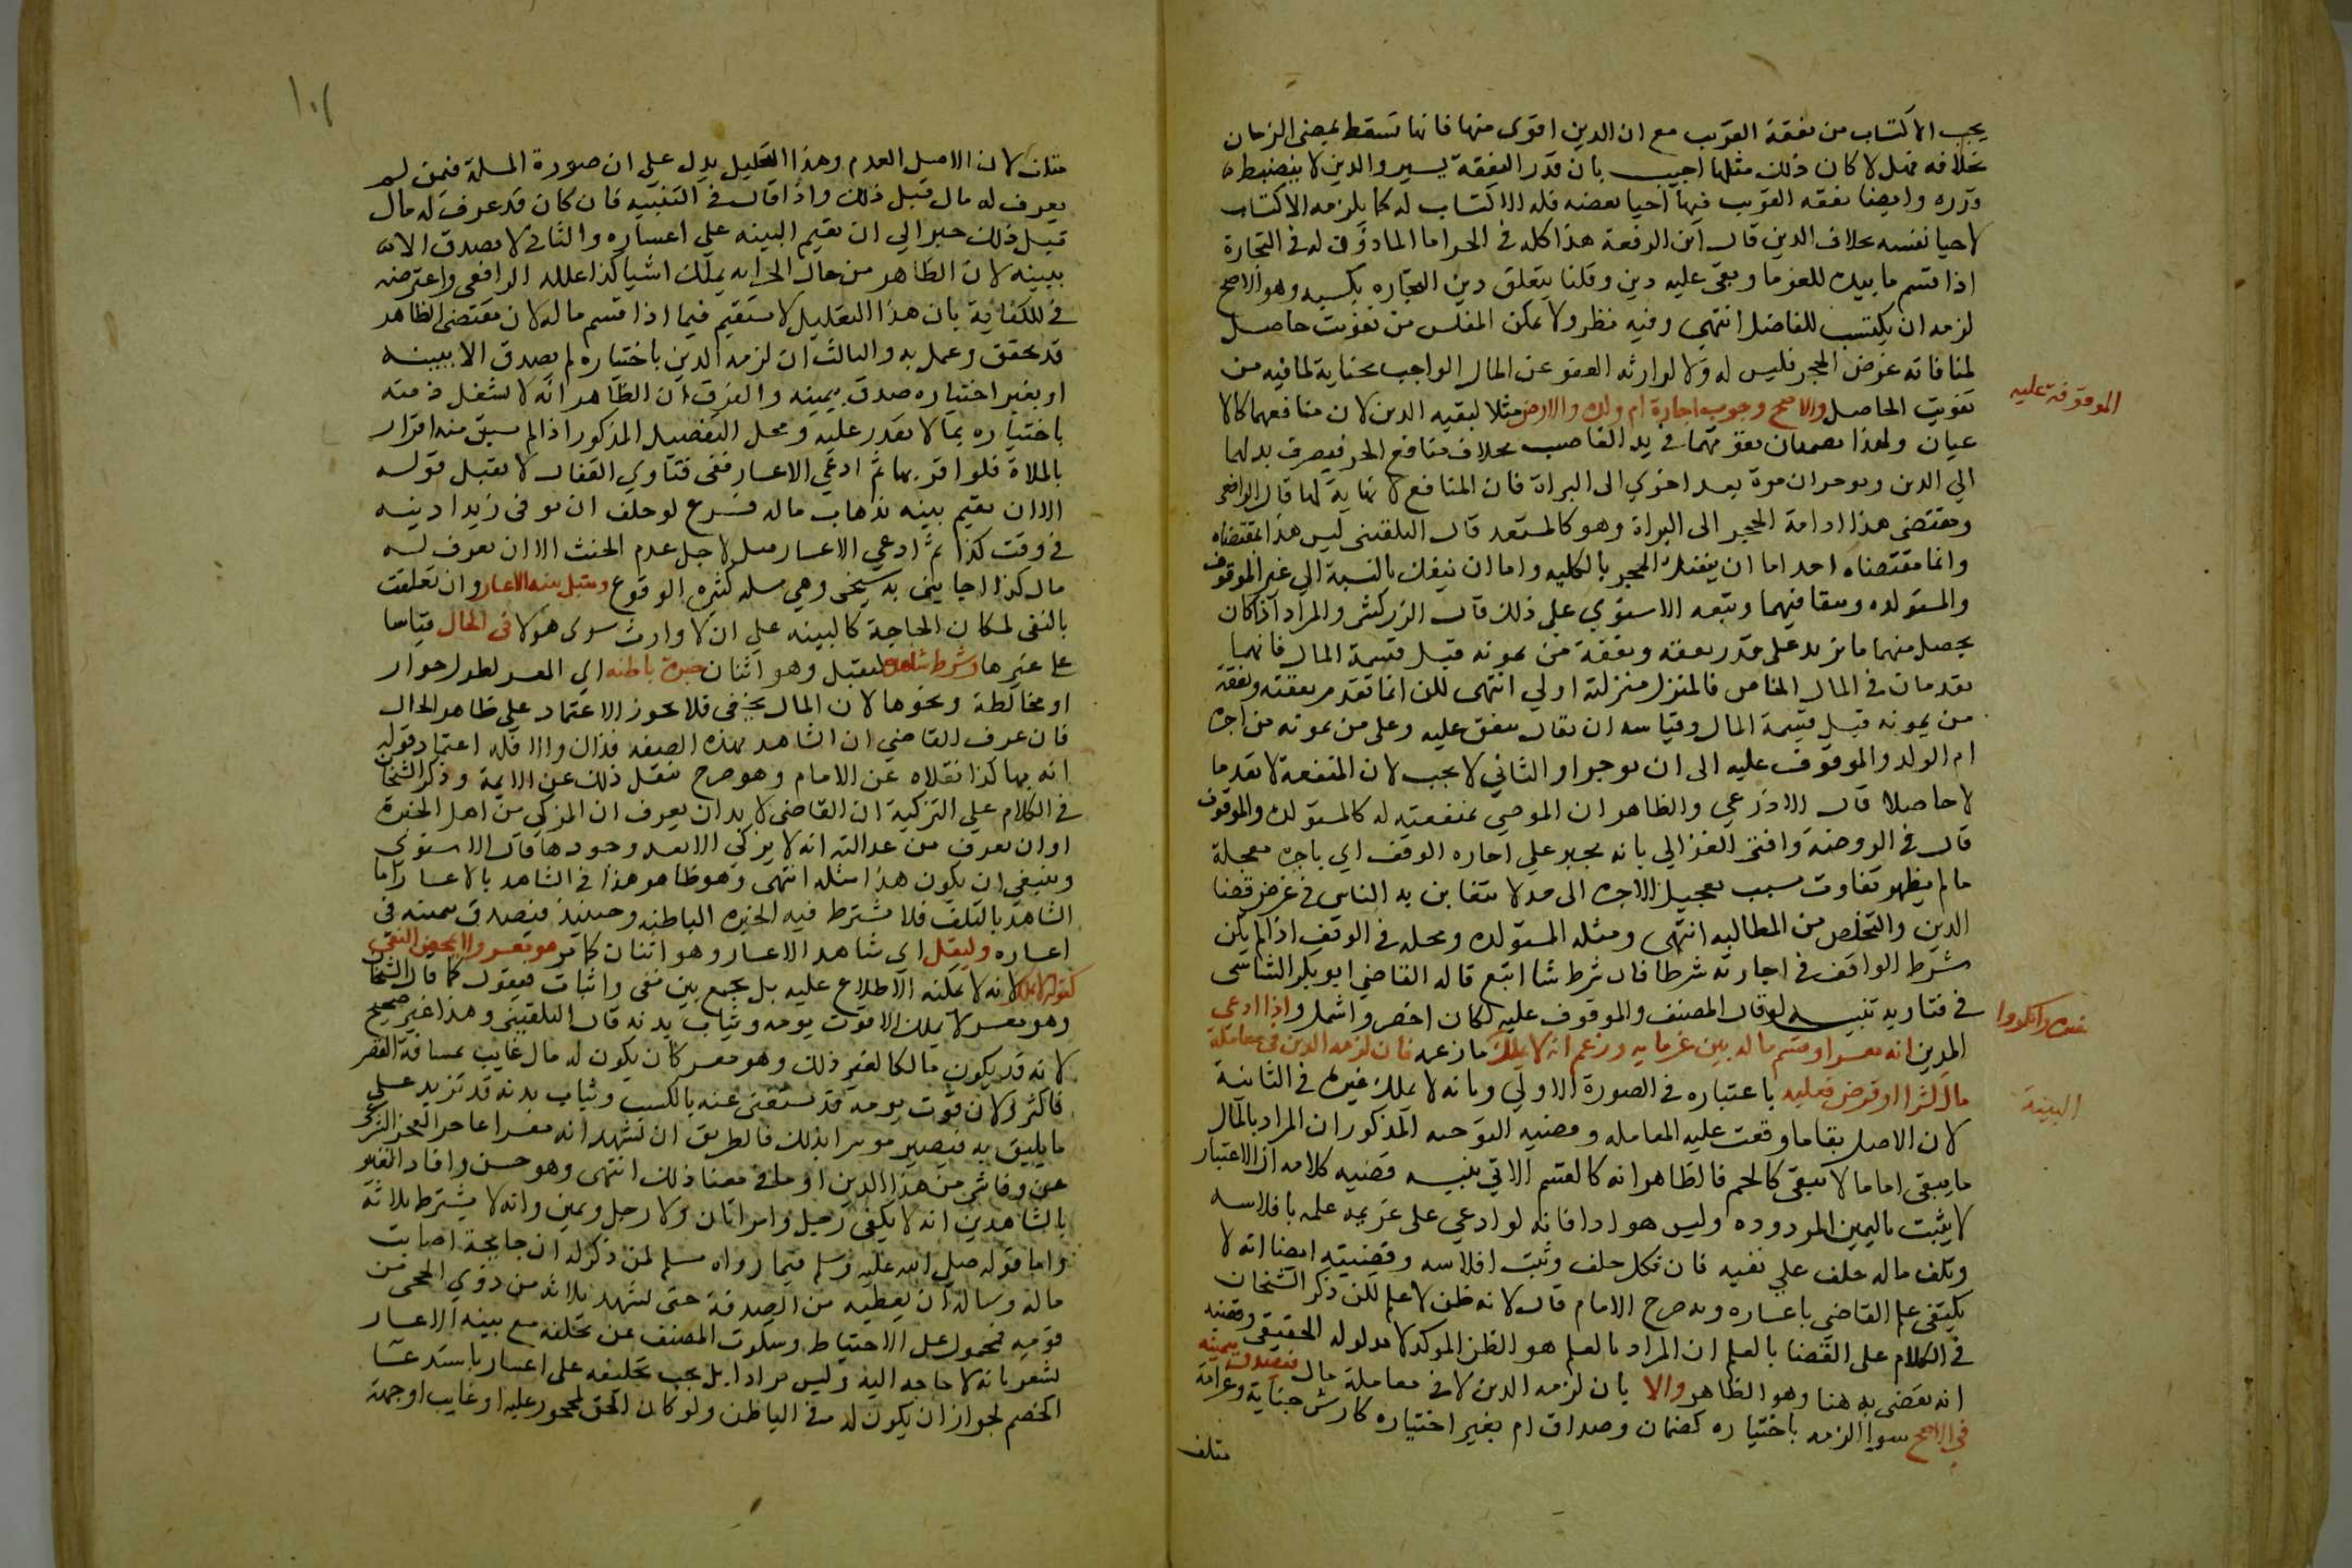 يجب الاكتساب من نفقة القريب مع ان الدين اقوى منها فانها تسقط بمضي الزمان
بخلافه فهل لا كان ذلك مثلها اجيب بان قدر النفقة يسير والدين لا ينضبط
قدره وايضا نفقه القريب فيها احيا بعضه فله الاكتساب له كما يلزمه الاكتساب
لاحيا نفسه بخلاف الدين قال ابن الرفعة هذا كله في الحر اما الماذون له في التجارة
اذا قسم ما بيده للغرما وبقى عليه دين وقلنا يتعلق دين التجاره بكسبه وهو الاصح
لزمه ان يكتسب للفاضل انتهى وفيه نظر ولا يمكن المفلس من تفويت حاصل
لمنافاته غرض الحجر فليس له ولا لوارثه العفو عن المال الواجب بجناية لما فيه من
تفويت الحاصل والاصح وجوب اجارة ام ولده والارض مثلا لبقيه الدين لان منافعهما كالا
الموقوفة عليه
عيان ولهذا يضمنان بفوتهما في يد الغاصب بخلاف منافع الحر فيصرف بدلهما
الي الدين ويوجران مرة بعد اخري الى البراة فان المنافع لا نهاية لها قال الرافعي
ومقتضى هذا ادامة الحجر الى البراة وهو كالمستبعد قال البلقيني ليس هذا مقتضاه
وانما مقتضاه احد اما ان ينفك الحجر بالكليه واما ان ينفك بالنسبة الي غير الموقوف
والمستولده ويبقا فيهما وتبعه الاسنوي على ذلك قال الزركشي والمراد اذا كان
يحصل منهما ما يزيد على قدر نفقه ونفقة من يمونه قبل قسمة المال فانهما
يقدمان في المال الخاص فالمنزل منزلته اولي انتهى لكن انما تقدم نفقته ونفقة
من يمونه قبل قسمة المال وقياسه ان يقال ينفق عليه وعلى من يمونه من اجرة
ام الولد والموقوف عليه الى ان يوجرا والثاني لا يجب لان المنفعة لا تعد ما
لا حاصلا قال الاذرعي والظاهر ان الموصي بمنفعته له كالمستولده والموقوف
قال في الروضة وافتى الغزالي بانه يجبر علي اجاره الوقف اي باجرة معجلة
ما لم يظهر تفاوت بسبب تعجيل الاجرة الى حد لا يتغابن به الناس في غرض قضا
الدين والتخلص من المطالبه انتهى ومثله المستولدة ومحله في الوقف اذا لم يكن
شرط الواقف في اجارته شرطا فان شرط شيا اتبع قاله القاضي ابو بكر الشاشى
في فتاويه تنبيه لو قال المصنف والموقوف عليه لكان اخصر واشمل واذا ادعى
المدين انه معسر او قسم ماله بين غرمايه وزعم انه لا يملك مازعمه فان لزمه الدين في معاملة
مال كشرا او قرض فعليه باعتباره في الصورة الاولي وبانه لا يملك غيره في الثانية
البينة
لان الاصل بقا ما وقعت عليه المعامله وقضيه التوجيه المذكور ان المراد بالمال
ما يبقى اما ما لا يبقى كاللحم فالظاهر انه كالقسم الاتي تنبيه قضيه كلامه ان الاعتبار
لا يثبت باليمين المردوده وليس مرادا فانه لو ادعي على غريمه علمه بافلاسه
وتلف ماله حلف علي نفيه فان نكل حلف وثبت افلاسه وقضيته ايضا انه لا
يكتفى بعلم القاضي باعساره وبه صرح الامام قال لانه ظن لا علم لكن ذكر الشيخان
في الكلام على القضا بالعلم ان المراد بالعلم هو الظن الموكد لا مدلوله الحقيقي وقضيته
انه يقضى به هنا وهو الظاهر والا بان لزمه الدين لا في معاملة مال فيصدق بيمينه
في الاصح سوا الزمه باختياره كضمان وصداق ام بغير اختياره كارش جناية وغرامة
متلف
متلف لان الاصل العدم وهذا التعليل يدل على ان صورة المسلة فيمن لم
يعرف له مال قبل ذلك واذا قال في التنبيه فان كان قد عرف له مال
قبل ذلك حبس الي ان يقيم البينه علي اعساره والثاني لا يصدق الا
ببينه لان الظاهر من حال الحر انه يملك اشيا كذا علله الرافعي واعترضه
في الكفاية بان هذا التعليل لا يستقيم فيما اذا قسم ماله لان مقتضى الظاهر
قد تحقق وعمل به والثالث ان لزمه الدين باختياره لم يصدق الا ببينه
او بغير اختياره صدق بيمينه والفرق ان الظاهر انه لا يشغل ذمته
باختياره بما لا يقدر عليه ومحل التفصيل المذكور اذا لم يسبق منه اقرار
بالملاة فلو اقر بها ثم ادعي الاعسار ففى فتاوي القفال لا يقبل قوله
الا ان يقيم بينه بذهاب ماله فرع لو حلف ان يوفى زيدا دينه
في وقت كذا ثم ادعى الاعسار قبل لاجل عدم الحنث الا ان يعرف له
مال كذا اجابني به شيخى وهي مسله كثيره الوقوع وتقبل بينة الاعسار وان تعلقت
بالنفى لمكان الحاجة كالبينه علي ان لا وارث سوى هولا في الحال قياسا
على غيرها وشرط شاهده ليقبل وهو اثنان خبرة باطنه اي المعسر لطول جوار
او مخالطة ونحوها لان المال يخفى فلا يجوز الاعتماد على ظاهر الحال
فان عرف القاضي ان الشاهد بهذه الصفه فذاك والا فله اعتماد قوله
انه بها كذا نقلاه عن الامام وهو صرح بنقل ذلك عن الايمة وذكر الشيخان
في الكلام علي التزكية ان القاضي لا بد ان يعرف ان المزكي من اهل الخبرة
او ان يعرف من عدالته انه لا يزكى الا بعد وجودها قال الاسنوى
وينبغي ان يكون هذا مثله انتهى وهو ظاهر هذا في الشاهد بالاعسار اما
الشاهد بالتلف فلا يشترط فيه الخبره الباطنه وحينيذ فيصدق بيمينه في
اعساره وليقل اي شاهد الاعسار وهو اثنان كما مر هو معسر ولا يمحض النفى
كقوله لا يملك لانه لا يمكنه الاطلاع عليه بل يجمع بين نفى واثبات فيقول كما قال الشيخان
وهو معسر لا يملك الا قوت يومه وثياب بدنه قال البلقيني وهذا غير صحيح
لانه قد يكون مالكا لغير ذلك وهو معسر كان يكون له مال غايب بمسافة القصر
فاكثر ولان قوت يومه قد يستغنى عنه بالكسب وثياب بدنه قد تزيد على
ما يليق به فيصير موسرا بذلك فالطريق ان يشهد انه معسر عاجز العجز الشرعي
عن وفا شي من هذا الدين او ما في معنا ذلك انتهى وهو حسن وافاد التعبير
بالشاهدين انه لا يكفى رجل وامراتان ولا رجل ويمين وانه لا يشترط ثلاثه
واما قوله صلى الله عليه وسلم فيما رواه مسلم لمن ذكر له ان جايحة اصابت
ماله وساله ان يعطيه من الصدقة حتى يشهد ثلاثه من ذوي الحجى من
قومه فمحمول على الاحتياط وسكوت المصنف عن تحليفه مع بينة الاعسار
يشعر بانه لا حاجه اليه وليس مرادا بل يجب تحليفه على اعساره باستدعا
الخصم لجواز ان يكون له مال في الباطن ولو كان الحق لمحجور عليه او غايب او جهة